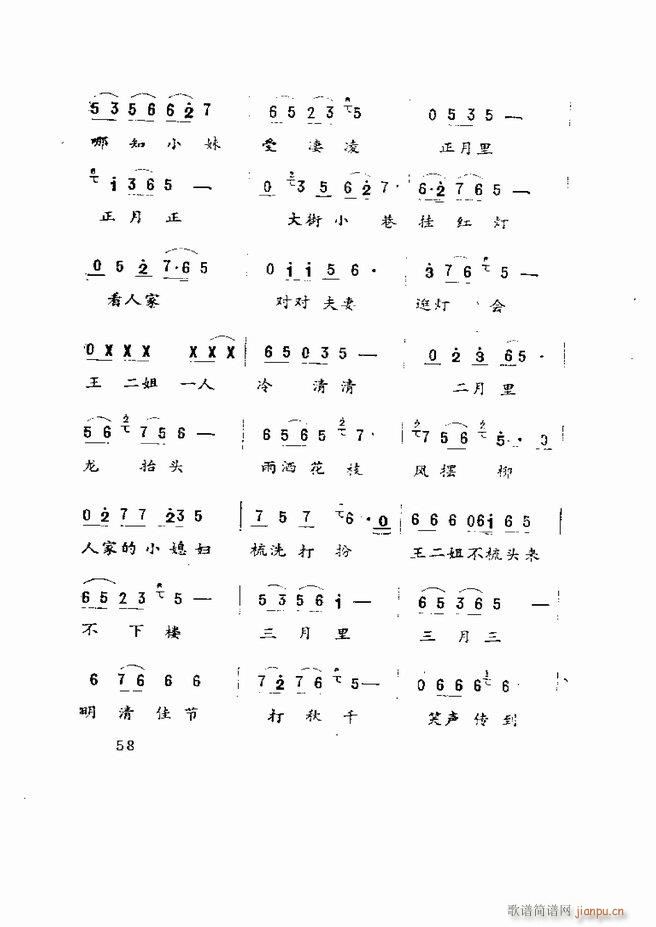 5 3 5 6 6 2 7 6 5 2 3 5 0 5 3 5 —
哪知小妹 受凄凌 正月里
i 3 6 5 — 0 3 5 6 2 7 · 6 · 2 7 6 5 —
正月正 大街小巷挂红灯
0 5 2 7 · 6 5 0 i i 5 6 · 3 7 6 5 —
看人家 对对夫妻 逛灯会
0 X X X X X X 6 5 0 3 5 — 0 2 3 6 5 ·
王二姐一人 冷清清 二月里
5 6 7 5 6 — 6 5 6 5 7 · 7 5 6 5 · 0
龙抬头 雨洒花枝 风摆柳
0 2 7 7 2 3 5 7 5 7 6 · 0 6 6 6 0 6 i 6 5
人家的小媳妇 梳洗打扮 王二姐不梳头来
6 5 2 3 5 — 5 3 5 6 i — 6 5 3 6 5 —
不下楼 三月里 三月三
6 7 6 6 6 7 2 7 6 5 — 0 6 6 6 6 ·
明清佳节 打秋千 笑声传到
58
歌谱简谱网 jianpu.cn